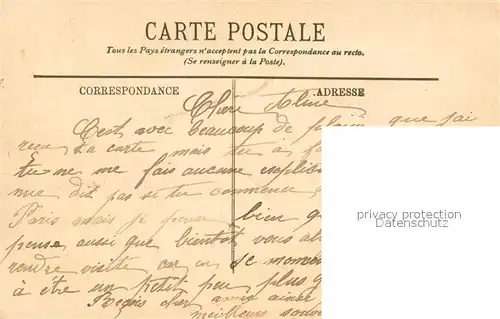 CARTE POSTALE
Tous les Pays étrangers n'acceptent pas la Correspondance au recto.
(Se renseigner à la Poste).
CORRESPONDANCE
ADRESSE
Chère Aline
C'est avec beaucoup de plaisir que j'ai
recu ta carte mais tu a
tu ne me fais aucune
me dit pas si tu commence
Paris mais je pense bien
pense aussi que bientôt vous
rendre visite car en ce moment
à être un petit peu plus
Reçois cher amie
meilleurs
privacy protection
Datenschutz